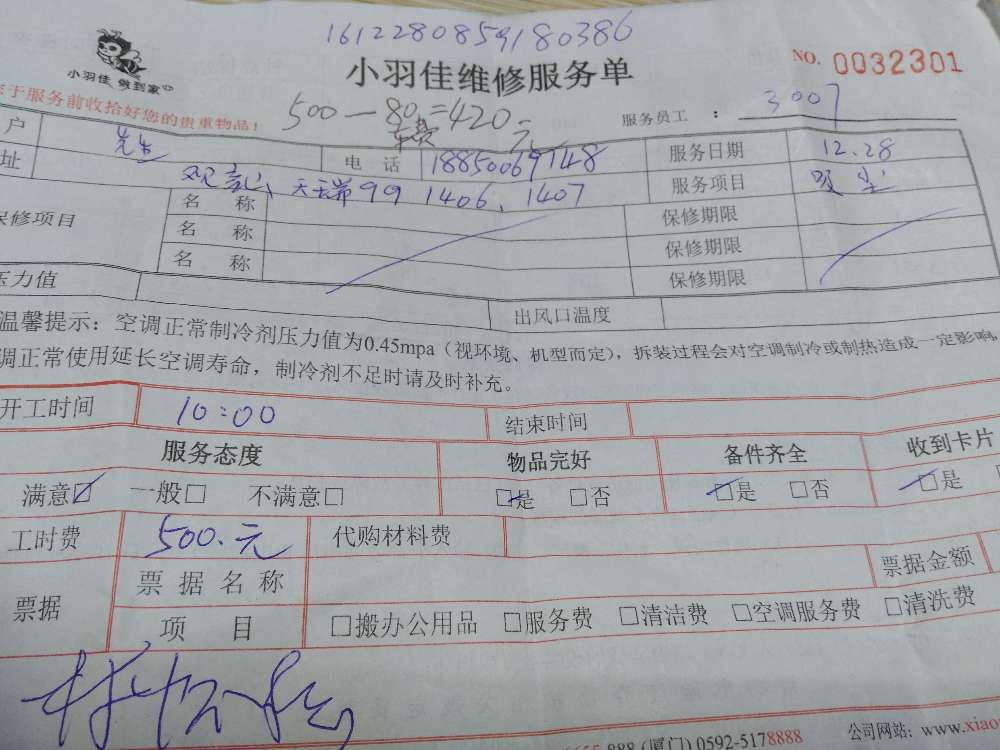 1612280859180386
小羽佳 做到家
小羽佳维修服务单
NO. 0032301
于服务前收拾好您的贵重物品!
500-80=420元
车费
服务员工 : 3007
户 先生 电话 18850069148 服务日期 12.28
址 天云第99 1406、1407 服务项目 吸尘
保修项目 名称 保修期限
名称 保修期限
名称 保修期限
压力值 出风口温度
温馨提示：空调正常制冷剂压力值为0.45mpa（视环境、机型而定），拆装过程会对空调制冷或制热造成一定影响，
调正常使用延长空调寿命，制冷剂不足时请及时补充。
开工时间 10:00 结束时间
服务态度 物品完好 备件齐全 收到卡片
满意☑ 一般□ 不满意□ ☑是 □否 ☑是 □否 ☑是
工时费 500.元 代购材料费
票据 票据名称 票据金额
项目 □搬办公用品 □服务费 □清洁费 □空调服务费 □清洗费
888 (厦门) 0592-5178888 公司网站：www.xiao